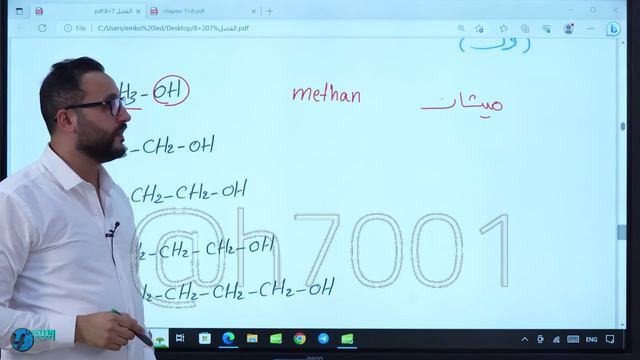 الفصل 7+8.pdf
chapter 7+8.pdf
File | C:/Users/emko%20led/Desktop/8+207%الفصل.pdf
H3-OH methan ميثان
-CH2-OH
CH2-CH2-OH
-CH2-CH2-OH
-CH2-CH2-CH2-OH
@h7001
ENG